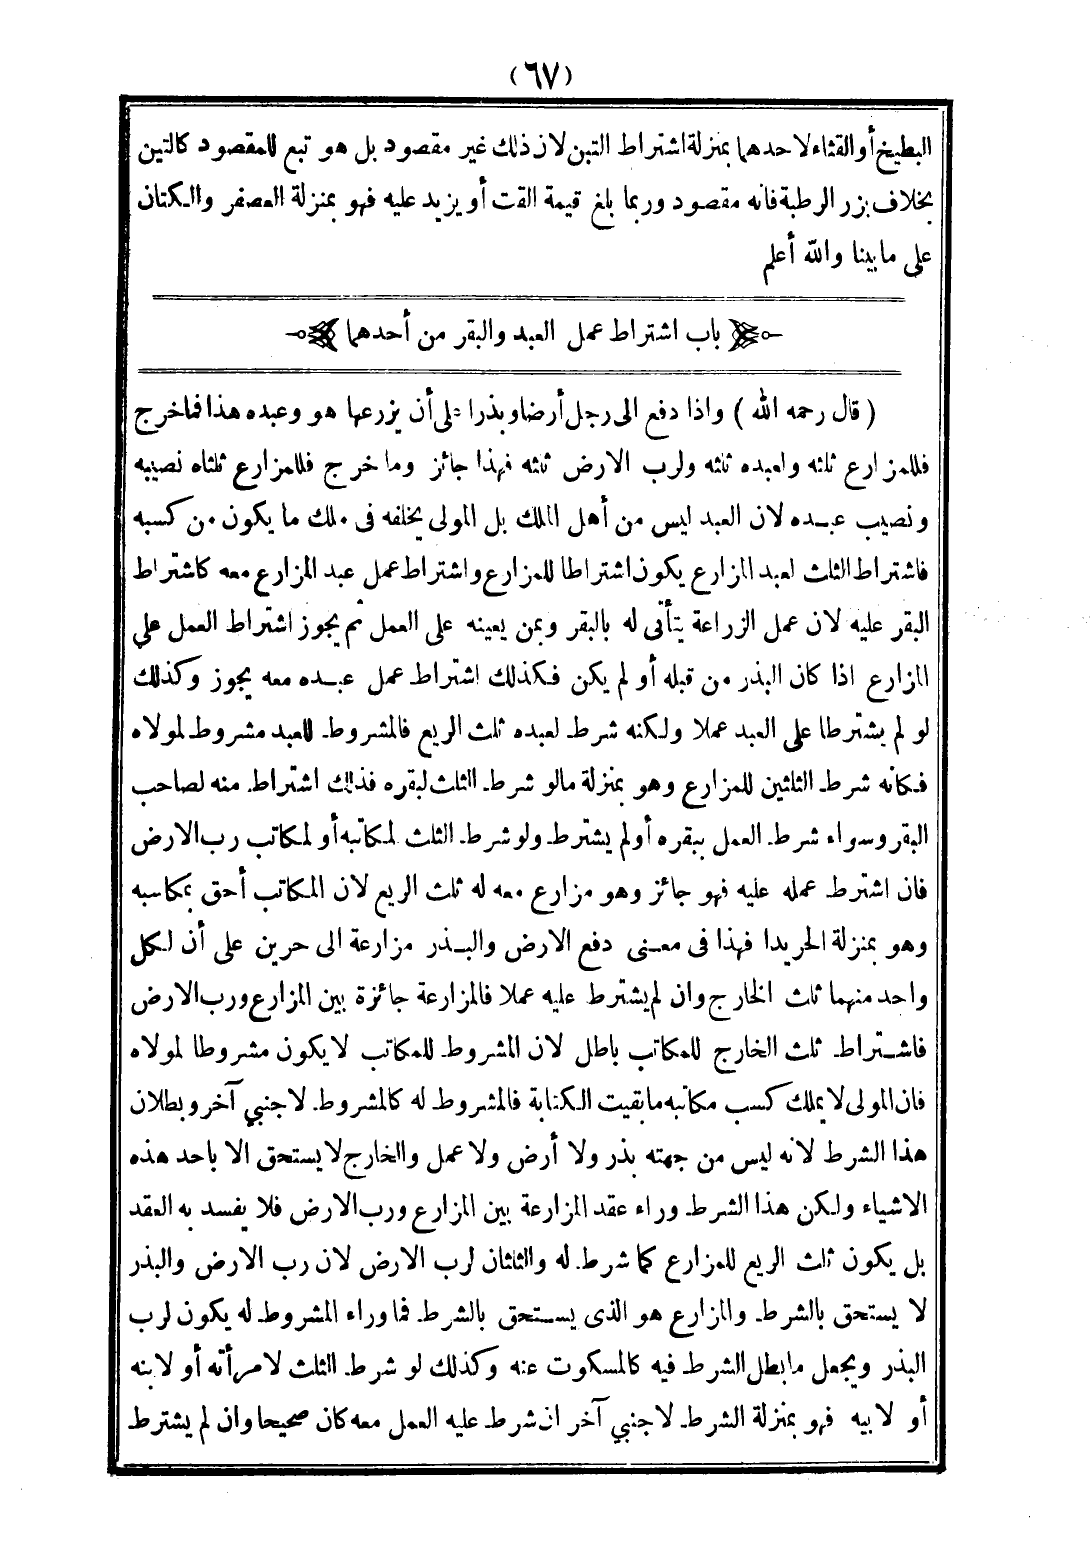 (٦٧)
البطيخ أو القثاء لاحدهما بمنزلة اشتراط التبن لان ذلك غير مقصود بل هو تبع للمقصود كالتين
بخلاف بزر الرطبة فانه مقصود وربما بلغ قيمة القت أو يزيد عليه فهو بمنزلة العصفر والكتان
على ما بينا والله أعلم
باب اشتراط عمل العبد والبقر من أحدهما
( قال رحمه الله ) واذا دفع الى رجل أرضا وبذرا على أن يزرعها هو وعبده هذا فما خرج
فللمزارع ثلثه ولعبده ثلثه ولرب الارض ثلثه فهذا جائز وما خرج فللمزارع ثلثاه نصيبه
ونصيب عبده لان العبد ليس من أهل الملك بل المولى يخلفه فى ملك ما يكون من كسبه
فاشتراط الثلث لعبد المزارع يكون اشتراطا للمزارع واشتراط عمل عبد المزارع معه كاشتراط
البقر عليه لان عمل الزراعة يتأتى له بالبقر وبمن يعينه على العمل ثم يجوز اشتراط العمل علي
المزارع اذا كان البذر من قبله أو لم يكن فكذلك اشتراط عمل عبده معه يجوز وكذلك
لو لم يشترطا على العبد عملا ولكنه شرط لعبده ثلث الريع فالمشروط للعبد مشروط لمولاه
فكانه شرط الثلثين للمزارع وهو بمنزلة مالو شرط الثلث لبقره فذلك اشتراط منه لصاحب
البقر وسواء شرط العمل ببقره أو لم يشترط ولو شرط الثلث لمكاتبه أو لمكاتب رب الارض
فان اشترط عمله عليه فهو جائز وهو مزارع معه له ثلث الريع لان المكاتب أحق بمكاسبه
وهو بمنزلة الحر يدا فهذا فى معنى دفع الارض والبذر مزارعة الى حرين على أن لكل
واحد منهما ثلث الخارج وان لم يشترط عليه عملا فالمزارعة جائزة بين المزارع ورب الارض
فاشتراط ثلث الخارج للمكاتب باطل لان المشروط للمكاتب لا يكون مشروطا لمولاه
فان المولى لا يملك كسب مكاتبه ما بقيت الكتابة فالمشروط له كالمشروط لاجنبي آخر وبطلان
هذا الشرط لانه ليس من جهته بذر ولا أرض ولا عمل والخارج لا يستحق الا باحد هذه
الاشياء ولكن هذا الشرط وراء عقد المزارعة بين المزارع ورب الارض فلا يفسد به العقد
بل يكون ثلث الريع للمزارع كما شرط له والثلثان لرب الارض لان رب الارض والبذر
لا يستحق بالشرط والمزارع هو الذى يستحق بالشرط فما وراء المشروط له يكون لرب
البذر ويجعل ما بطل الشرط فيه كالمسكوت عنه وكذلك لو شرط الثلث لامرأته أو لابنه
أو لابيه فهو بمنزلة الشرط لاجنبي آخر ان شرط عليه العمل معه كان صحيحا وان لم يشترط